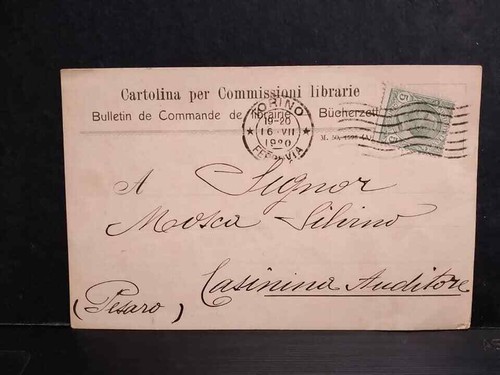 Cartolina per Commissioni librarie
Bulletin de Commande de librairie Bücherzett
TORINO
19-20
16 VII
1920
FERROVIA
5 5
A Signor
Mosca Silvino
Casinina Auditore
(Pesaro)